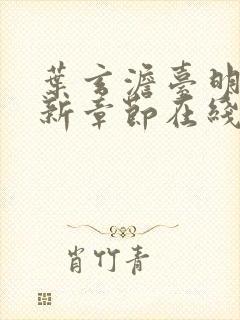 葉玄澹臺明
新章節在綫
肖竹青